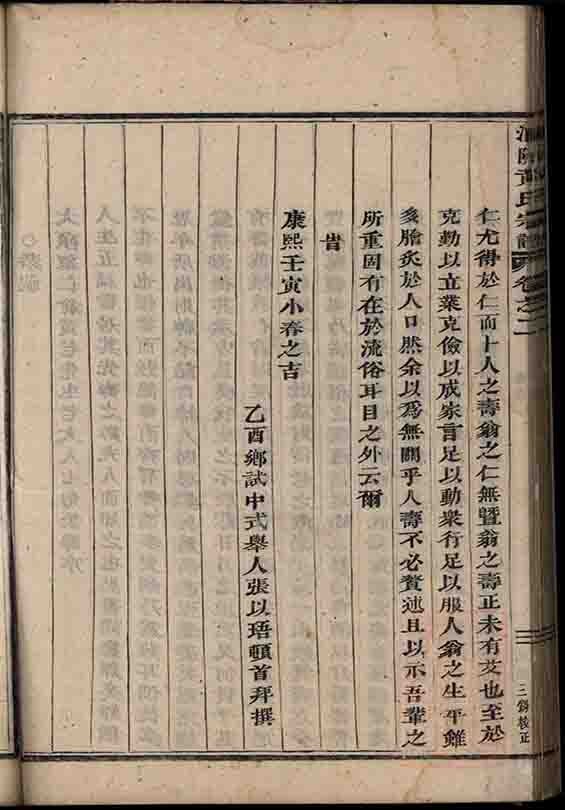 黃氏宗譜 卷之二
三錄校正
仁尤得於仁而十人之壽翁之仁無暨翁之壽正未有艾也至於
克勤以立業克儉以成家言足以動衆行足以服人翁之生平雖
多膾炙於人口然余以爲無關乎人壽不必贅述且以示吾輩之
所重固有在於流俗耳目之外云爾
旹
康熙壬寅小春之吉
乙酉鄉試中式舉人張以珸頓首拜撰